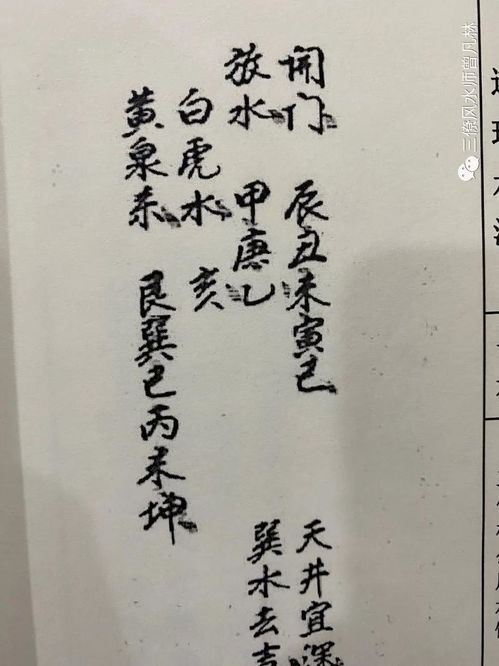 開门 辰丑未寅巳
放水 甲庚乙
白虎水 亥
黄泉杀 艮巽巳丙未坤
天井宜深
巽水去吉
三僚风水师曾凡林